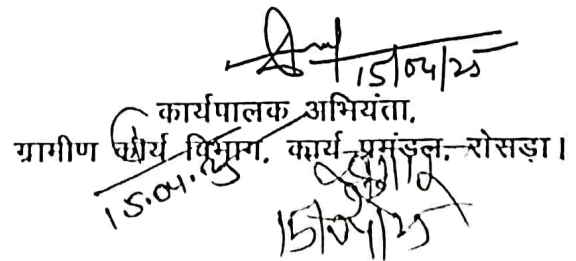 15/04/25
कार्यपालक अभियंता,
ग्रामीण कार्य विभाग, कार्य प्रमंडल, रोसड़ा।
15.04.25
15/04/25